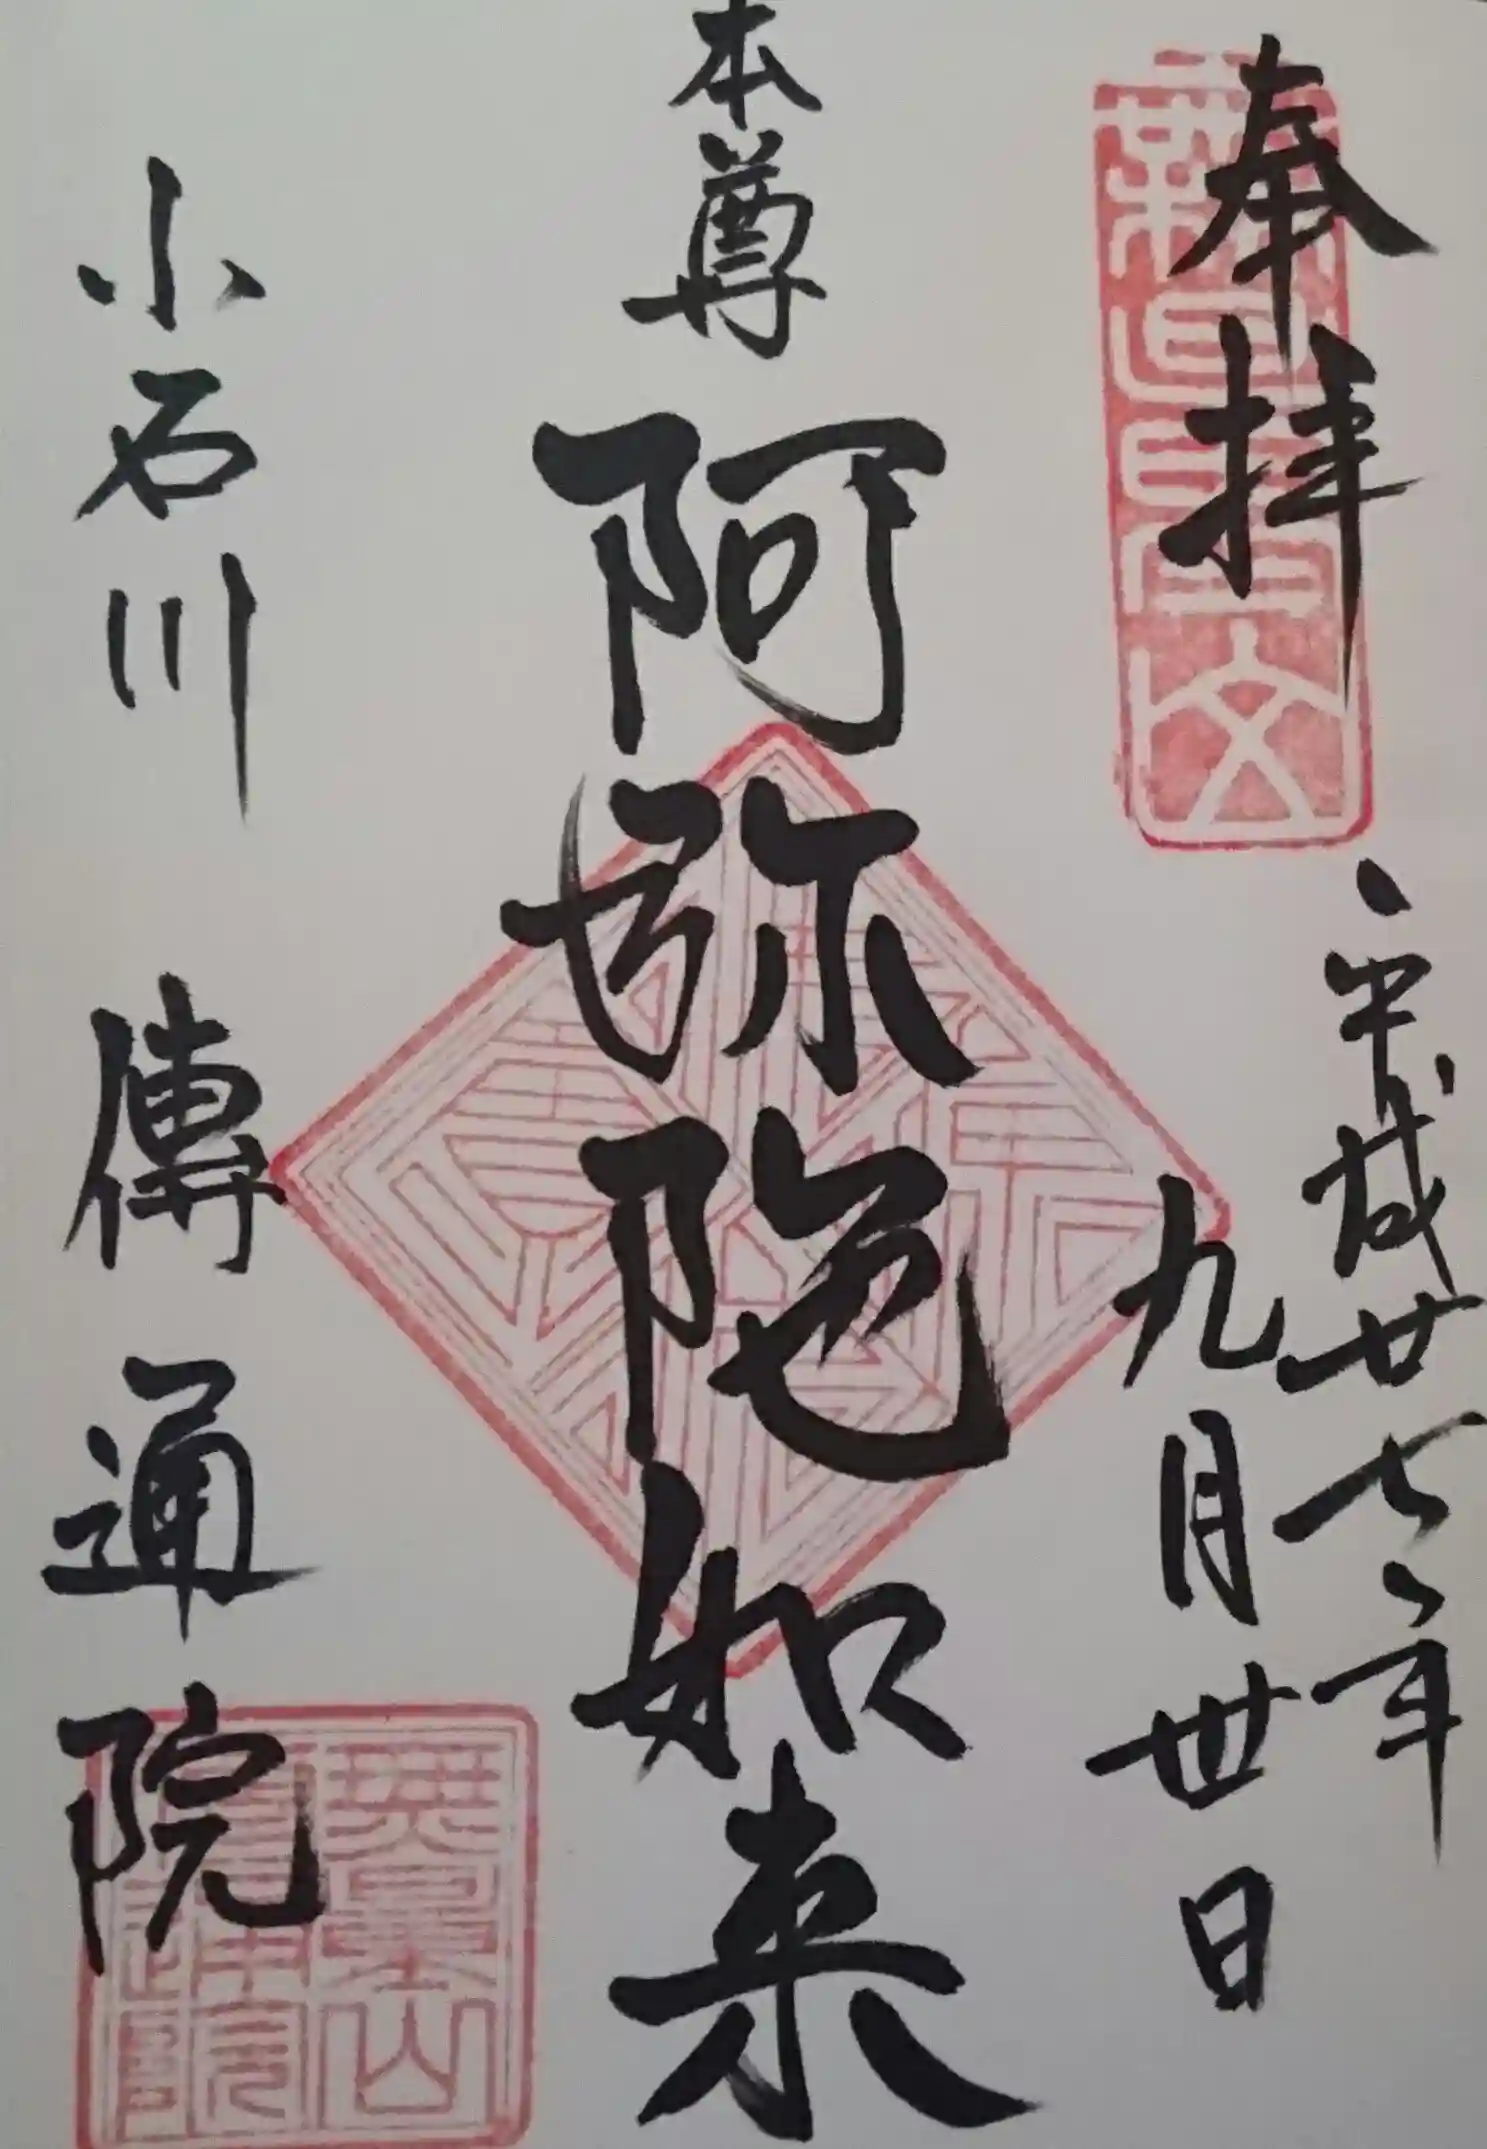 奉拝
平成廿七年
九月卅日
本尊
阿弥陀如来
小石川 傳通院
無量山
傳通院